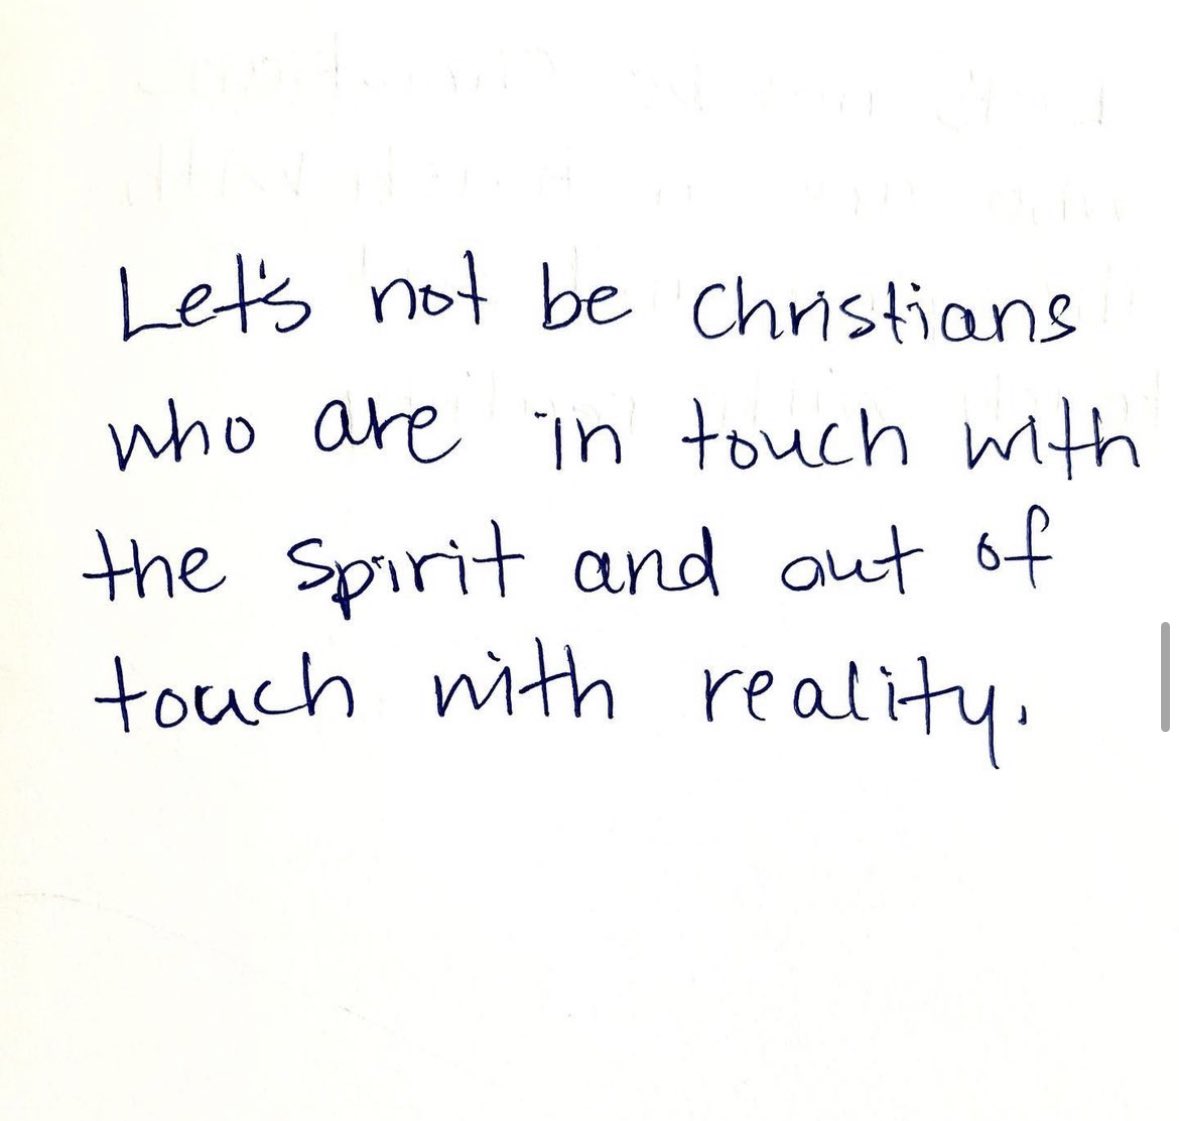 Let's not be Christians
who are in touch with
the Spirit and out of
touch with reality.